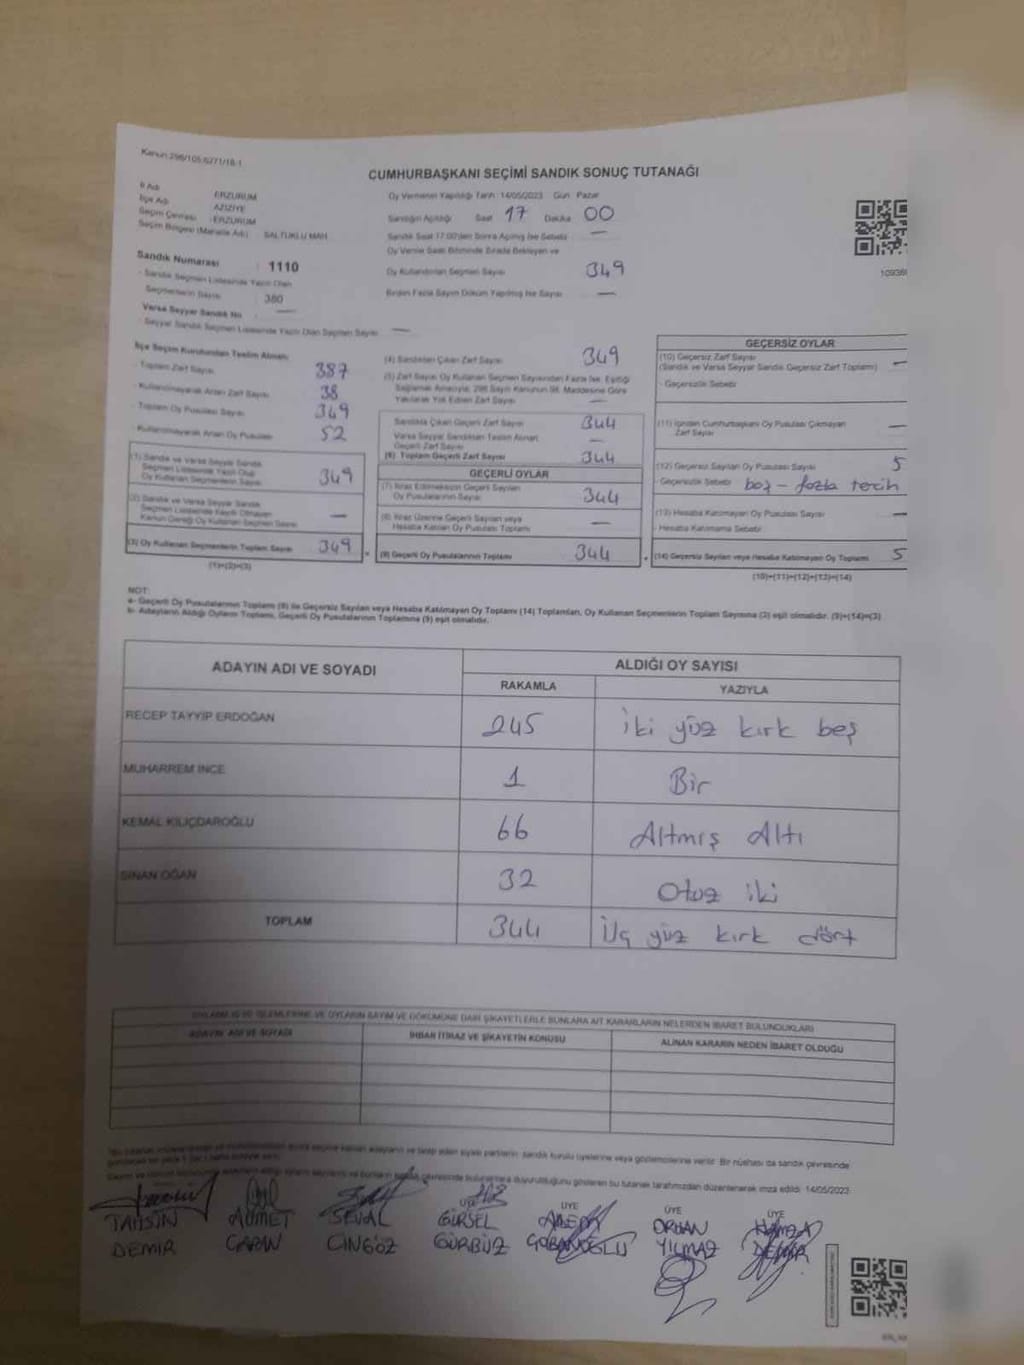 Kanun:298/105,6271/18-1
CUMHURBAŞKANI SEÇİMİ SANDIK SONUÇ TUTANAĞI
İl Adı ERZURUM
İlçe Adı AZİZİYE
Seçim Çevresi ERZURUM
Seçim Bölgesi (Mahalle Adı) SALTUKLU MAH.
Oy Vermenin Yapıldığı Tarih :14/05/2023 Gün : Pazar
Sandığın Açıldığı Saat 17 Dakika 00
Sandık Saat 17:00'den Sonra Açılmış İse Sebebi —
Oy Verme Saati Bitiminde Sırada Bekleyen ve
Oy Kullandırılan Seçmen Sayısı 349
Birden Fazla Sayım Döküm Yapılmış İse Sayısı —
109386
Sandık Numarası : 1110
- Sandık Seçmen Listesinde Yazılı Olan
Seçmenlerin Sayısı : 380
Varsa Seyyar Sandık No : —
- Seyyar Sandık Seçmen Listesinde Yazılı Olan Seçmen Sayısı —
İlçe Seçim Kurulundan Teslim Alınan:
- Toplam Zarf Sayısı 387
- Kullanılmayarak Artan Zarf Sayısı 38
- Toplam Oy Pusulası Sayısı 349
- Kullanılmayarak Artan Oy Pusulası 52
(1) Sandık ve Varsa Seyyar Sandık
Seçmen Listesinde Yazılı Olup
Oy Kullanan Seçmenlerin Sayısı 349
(2) Sandık ve Varsa Seyyar Sandık
Seçmen Listesinde Kayıtlı Olmayan
Kanun Gereği Oy Kullanan Seçmen Sayısı —
(3) Oy Kullanan Seçmenlerin Toplam Sayısı 349
(1)+(2)=(3)
(4) Sandıktan Çıkan Zarf Sayısı 349
(5) Zarf Sayısı Oy Kullanan Seçmen Sayısından Fazla İse, Eşitliği
Sağlamak Amacıyla, 298 Sayılı Kanunun 98. Maddesine Göre
Yakılarak Yok Edilen Zarf Sayısı —
Sandıkta Çıkan Geçerli Zarf Sayısı 344
Varsa Seyyar Sandıktan Teslim Alınan
Geçerli Zarf Sayısı —
(6) Toplam Geçerli Zarf Sayısı 344
GEÇERLİ OYLAR
(7) İtiraz Edilmeksizin Geçerli Sayılan
Oy Pusulalarının Sayısı 344
(8) İtiraz Üzerine Geçerli Sayılan veya
Hesaba Katılan Oy Pusulası Toplamı —
(9) Geçerli Oy Pusulalarının Toplamı 344
GEÇERSİZ OYLAR
(10) Geçersiz Zarf Sayısı
(Sandık ve Varsa Seyyar Sandık Geçersiz Zarf Toplamı) —
- Geçersizlik Sebebi
(11) İçinden Cumhurbaşkanı Oy Pusulası Çıkmayan
Zarf Sayısı —
(12) Geçersiz Sayılan Oy Pusulası Sayısı 5
- Geçersizlik Sebebi boş - fazla tercih
(13) Hesaba Katılmayan Oy Pusulası Sayısı —
- Hesaba Katılmama Sebebi
(14) Geçersiz Sayılan veya Hesaba Katılmayan Oy Toplamı 5
(10)+(11)+(12)+(13)=(14)
NOT:
a- Geçerli Oy Pusulalarının Toplamı (9) ile Geçersiz Sayılan veya Hesaba Katılmayan Oy Toplamı (14) Toplamları, Oy Kullanan Seçmenlerin Toplam Sayısına (3) eşit olmalıdır. (9)+(14)=(3)
b- Adayların Aldığı Oyların Toplamı, Geçerli Oy Pusulalarının Toplamına (9) eşit olmalıdır.
ADAYIN ADI VE SOYADI
ALDIĞI OY SAYISI
RAKAMLA YAZIYLA
RECEP TAYYİP ERDOĞAN 245 İki yüz kırk beş
MUHARREM İNCE 1 Bir
KEMAL KILIÇDAROĞLU 66 Altmış Altı
SİNAN OĞAN 32 Otuz iki
TOPLAM 344 Üç yüz kırk dört
İŞLEMLERİNE VE OYLARIN SAYIM VE DÖKÜMÜNE DAİR ŞİKAYETLERLE BUNLARA AİT KARARLARIN NELERDEN İBARET BULUNDUKLARI
ADAYIN ADI VE SOYADI İHBAR İTİRAZ VE ŞİKAYETİN KONUSU ALINAN KARARIN NEDEN İBARET OLDUĞU
sandık kurulu üyelerine veya gözlemcilerine verilir. Bir nüshası da sandık çevresinde
duyurulduğunu gösteren bu tutanak tarafımızdan düzenlenerek imza edildi. 14/05/2023
ÜYE ÜYE ÜYE ÜYE
TAHSİN AHMET SEVAL GÜRSEL ADEM ORHAN HAMZA
DEMİR CİNGÖZ GÜRBÜZ ÇOBANOĞLU YILMAZ DEMİR